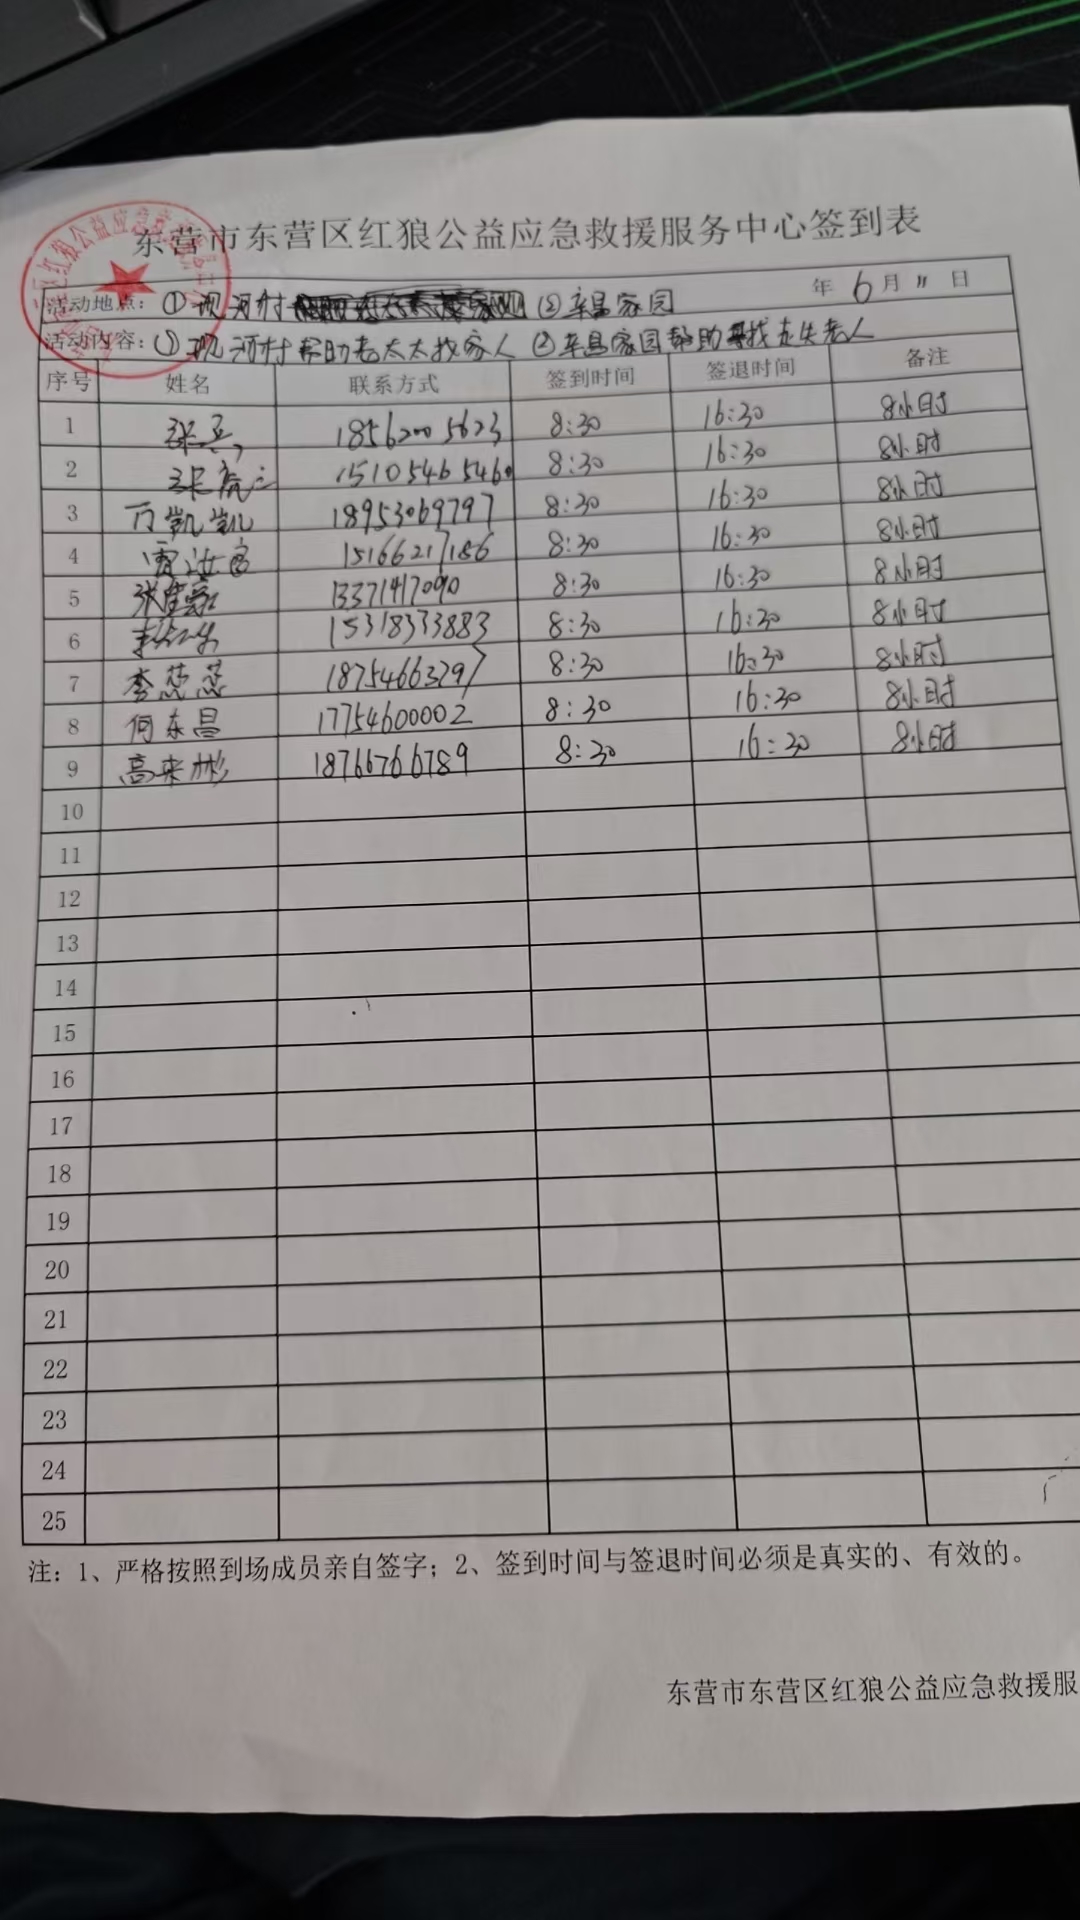 东营市东营区红狼公益应急救援服务中心签到表
活动地点：①现河村 ②辛昌家园 年 6 月 11 日
活动内容：①现河村帮助老太太找家人 ②辛昌家园帮助寻找走失老人
序号 姓名 联系方式 签到时间 签退时间 备注
1 18562005623 8:30 16:30 8小时
2 15105465460 8:30 16:30 8小时
3 万凯凯 18953069797 8:30 16:30 8小时
4 15166217186 8:30 16:30 8小时
5 13371417090 8:30 16:30 8小时
6 15318373883 8:30 16:30 8小时
7 李蕊蕊 18754663797 8:30 16:30 8小时
8 何东昌 17754600002 8:30 16:30 8小时
9 高来彬 18766766789 8:30 16:30 8小时
10
11
12
13
14
15
16
17
18
19
20
21
22
23
24
25
注：1、严格按照到场成员亲自签字；2、签到时间与签退时间必须是真实的、有效的。
东营市东营区红狼公益应急救援服